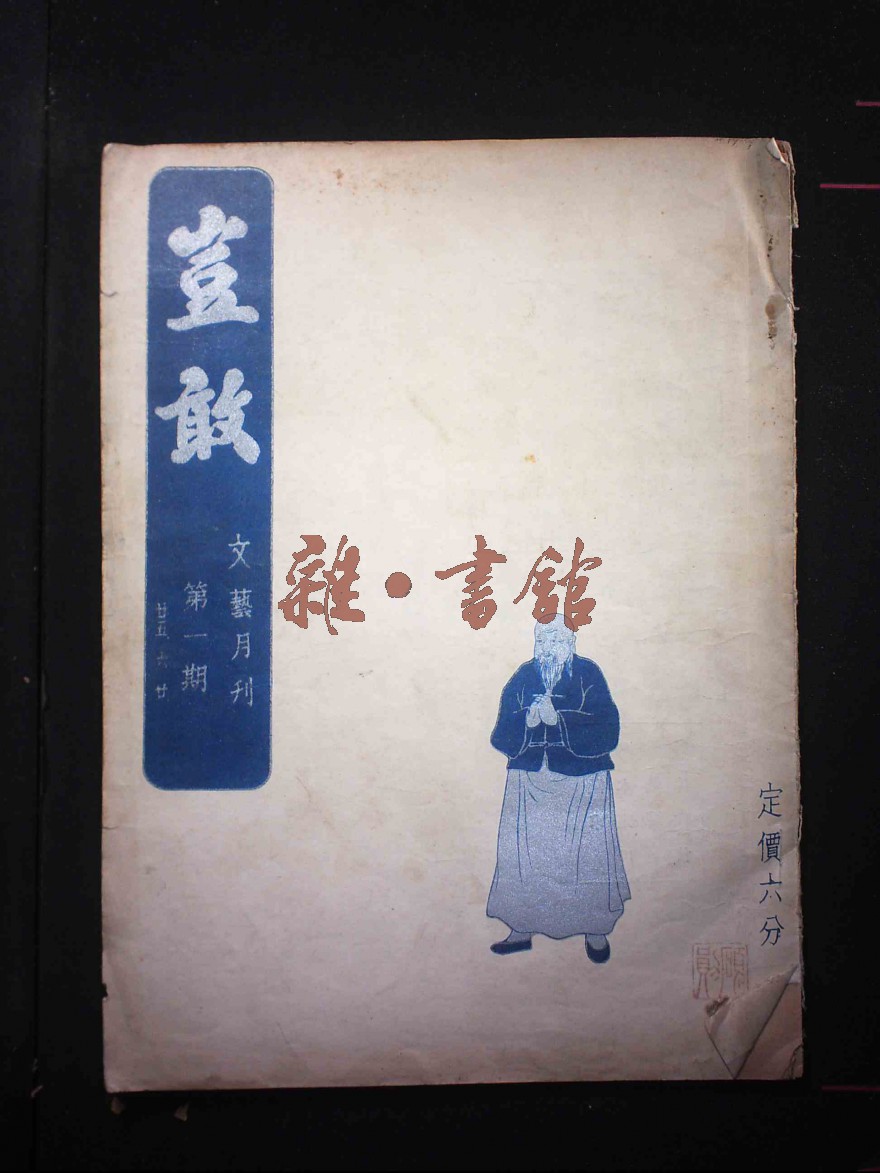 豈敢
文藝月刊
第一期
廿五 六 廿
雜·書館
定價六分